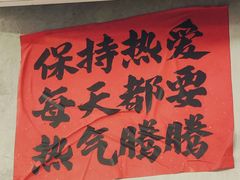 保持热爱
每天都要
热气腾腾